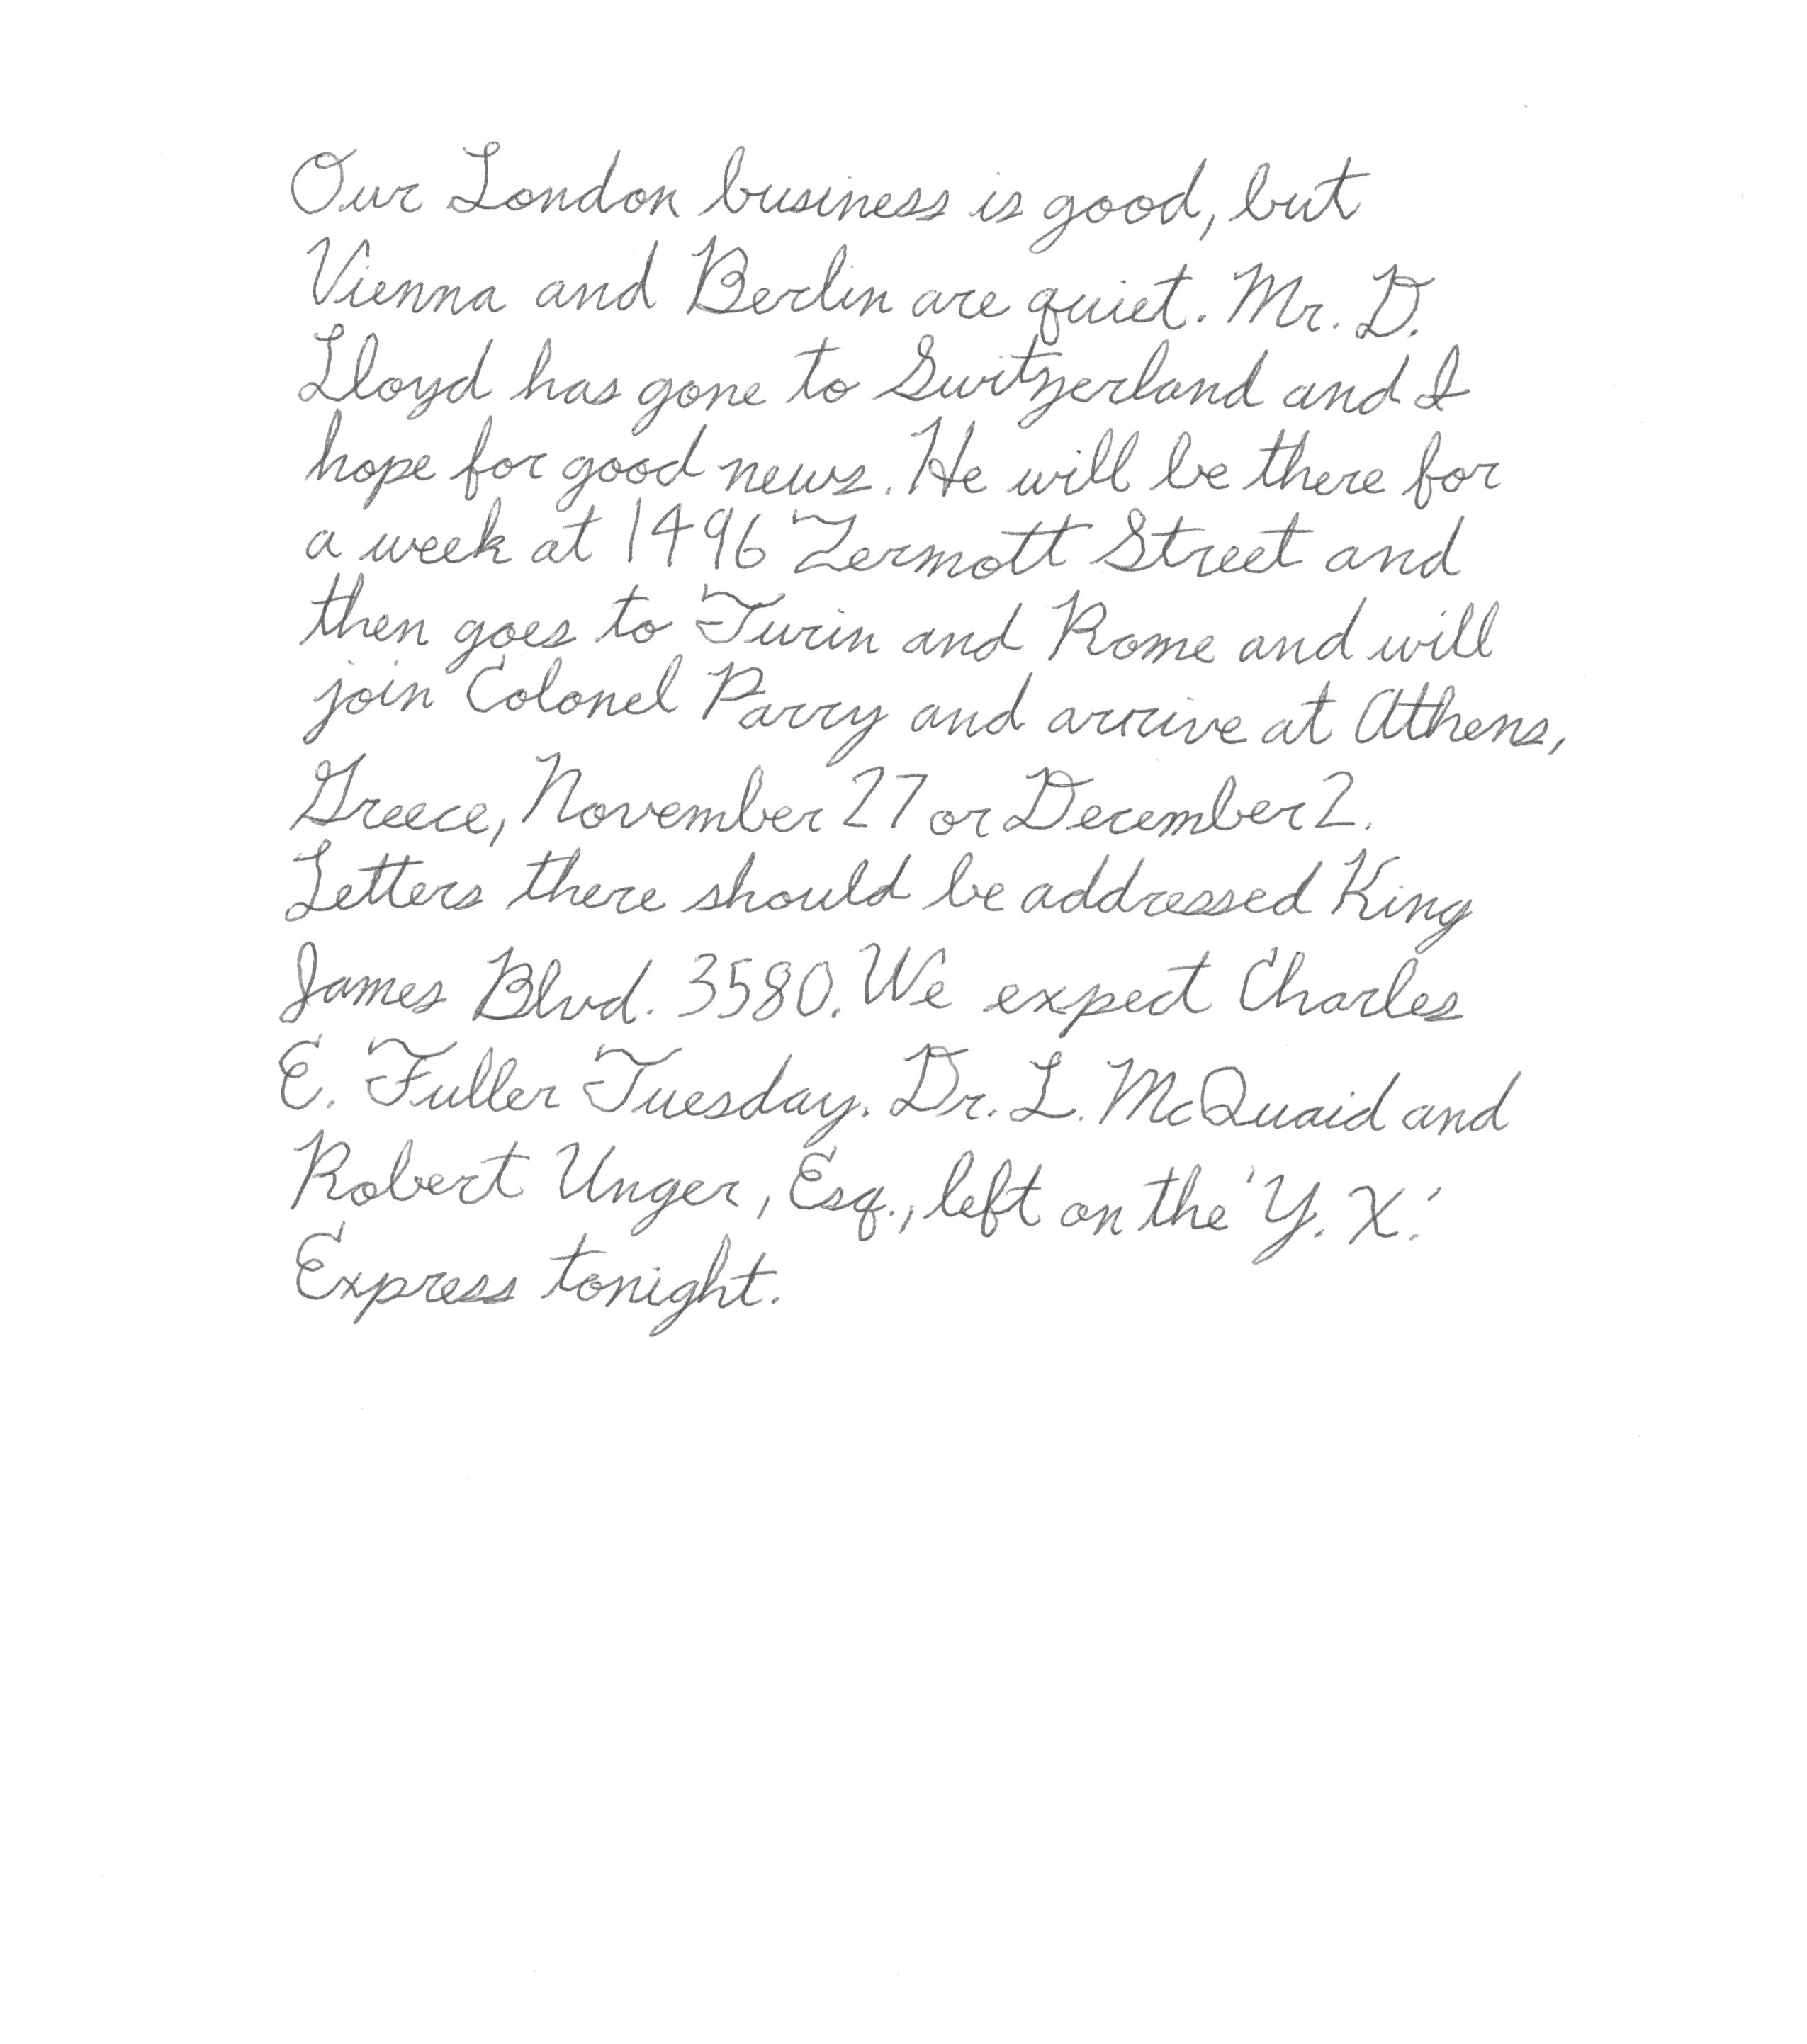 Our London business is good, but
Vienna and Berlin are quiet. Mr. D.
Lloyd has gone to Switzerland and I
hope for good news. He will be there for
a week at 1496 Zermott Street and
then goes to Turin and Rome and will
join Colonel Parry and arrive at Athens,
Greece, November 27 or December 2.
Letters there should be addressed King
James Blvd. 3580. We expect Charles
E. Fuller Tuesday. Dr. L. McQuaid and
Robert Unger, Esq., left on the 'Y. X.'
Express tonight.